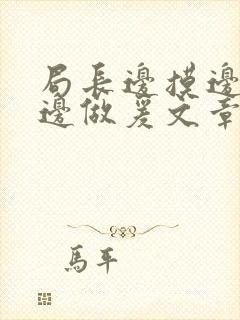 局長邊摸邊
邊做爰文章
馬平